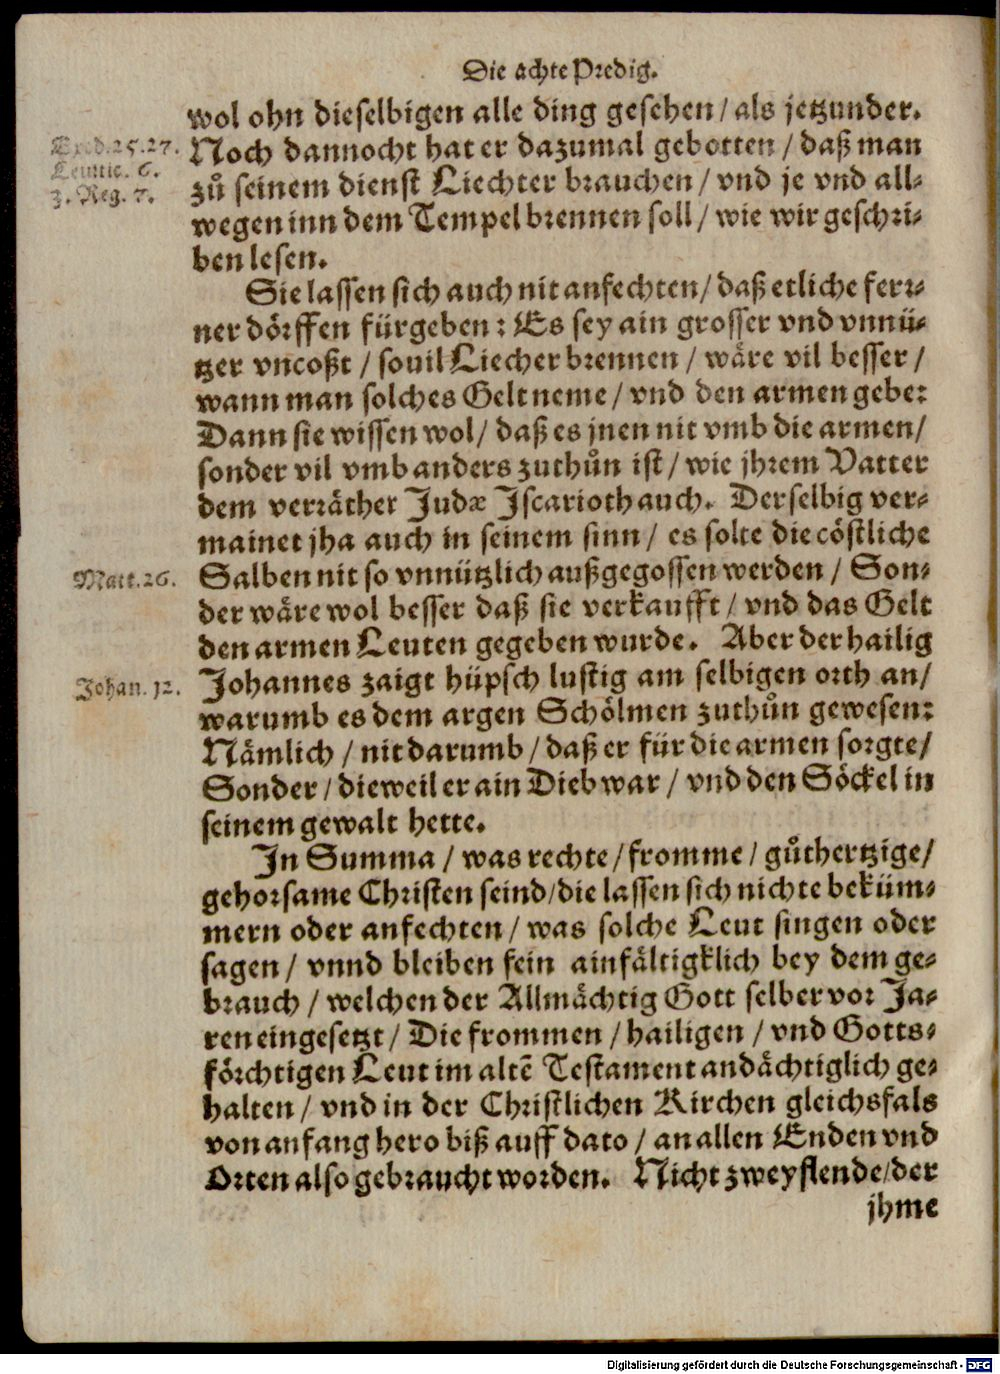 Die achte Predig.
wol ohn dieselbigen alle ding gesehen / als jetzunder.
Exod. 25. 27.
Leuitic. 6.
3. Reg. 7.
Noch dannocht hat er dazumal gebotten / daß man
zů seinem dienst Liechter brauchen / vnd je vnd all-
wegen inn dem Tempel brennen soll / wie wir geschri-
ben lesen.
Sie lassen sich auch nit anfechten / daß etliche ferr-
ner dörffen fürgeben: Es sey ain grosser vnd vnnü-
tzer vncoßt / souil Liecher brennen / wäre vil besser /
wann man solches Gelt neme / vnd den armen gebe:
Dann sie wissen wol / daß es jnen nit vmb die armen /
sonder vil vmb anders zuthůn ist / wie jhrem Vatter
dem verräther Judæ Jscarioth auch. Derselbig ver-
mainet jha auch in seinem sinn / es solte die cöstliche
Matt. 26.
Salben nit so vnnützlich außgegossen werden / Son-
der wäre wol besser daß sie verkaufft / vnd das Gelt
den armen Leuten gegeben wurde. Aber der hailig
Johan. 12.
Johannes zaigt hüpsch lustig am selbigen orth an /
warumb es dem argen Schölmen zuthůn gewesen:
Nämlich / nit darumb / daß er für die armen sorgte /
Sonder / dieweil er ain Dieb war / vnd den Söckel in
seinem gewalt hette.
In Summa / was rechte / fromme / gůthertzige /
gehorsame Christen seind / die lassen sich nichte beküm-
mern oder anfechten / was solche Leut singen oder
sagen / vnnd bleiben fein ainfältigklich bey dem ge-
brauch / welchen der Allmächtig Gott selber vor Ja-
ren eingesetzt / Die frommen / hailigen / vnd Gotts-
förchtigen Leut im altẽ Testament andächtiglich ge-
halten / vnd in der Christlichen Kirchen gleichsfals
von anfang hero biß auff dato / an allen Enden vnd
Orten also gebraucht worden. Nicht zweyflende / der
jhme
Digitalisierung gefördert durch die Deutsche Forschungsgemeinschaft - DFG